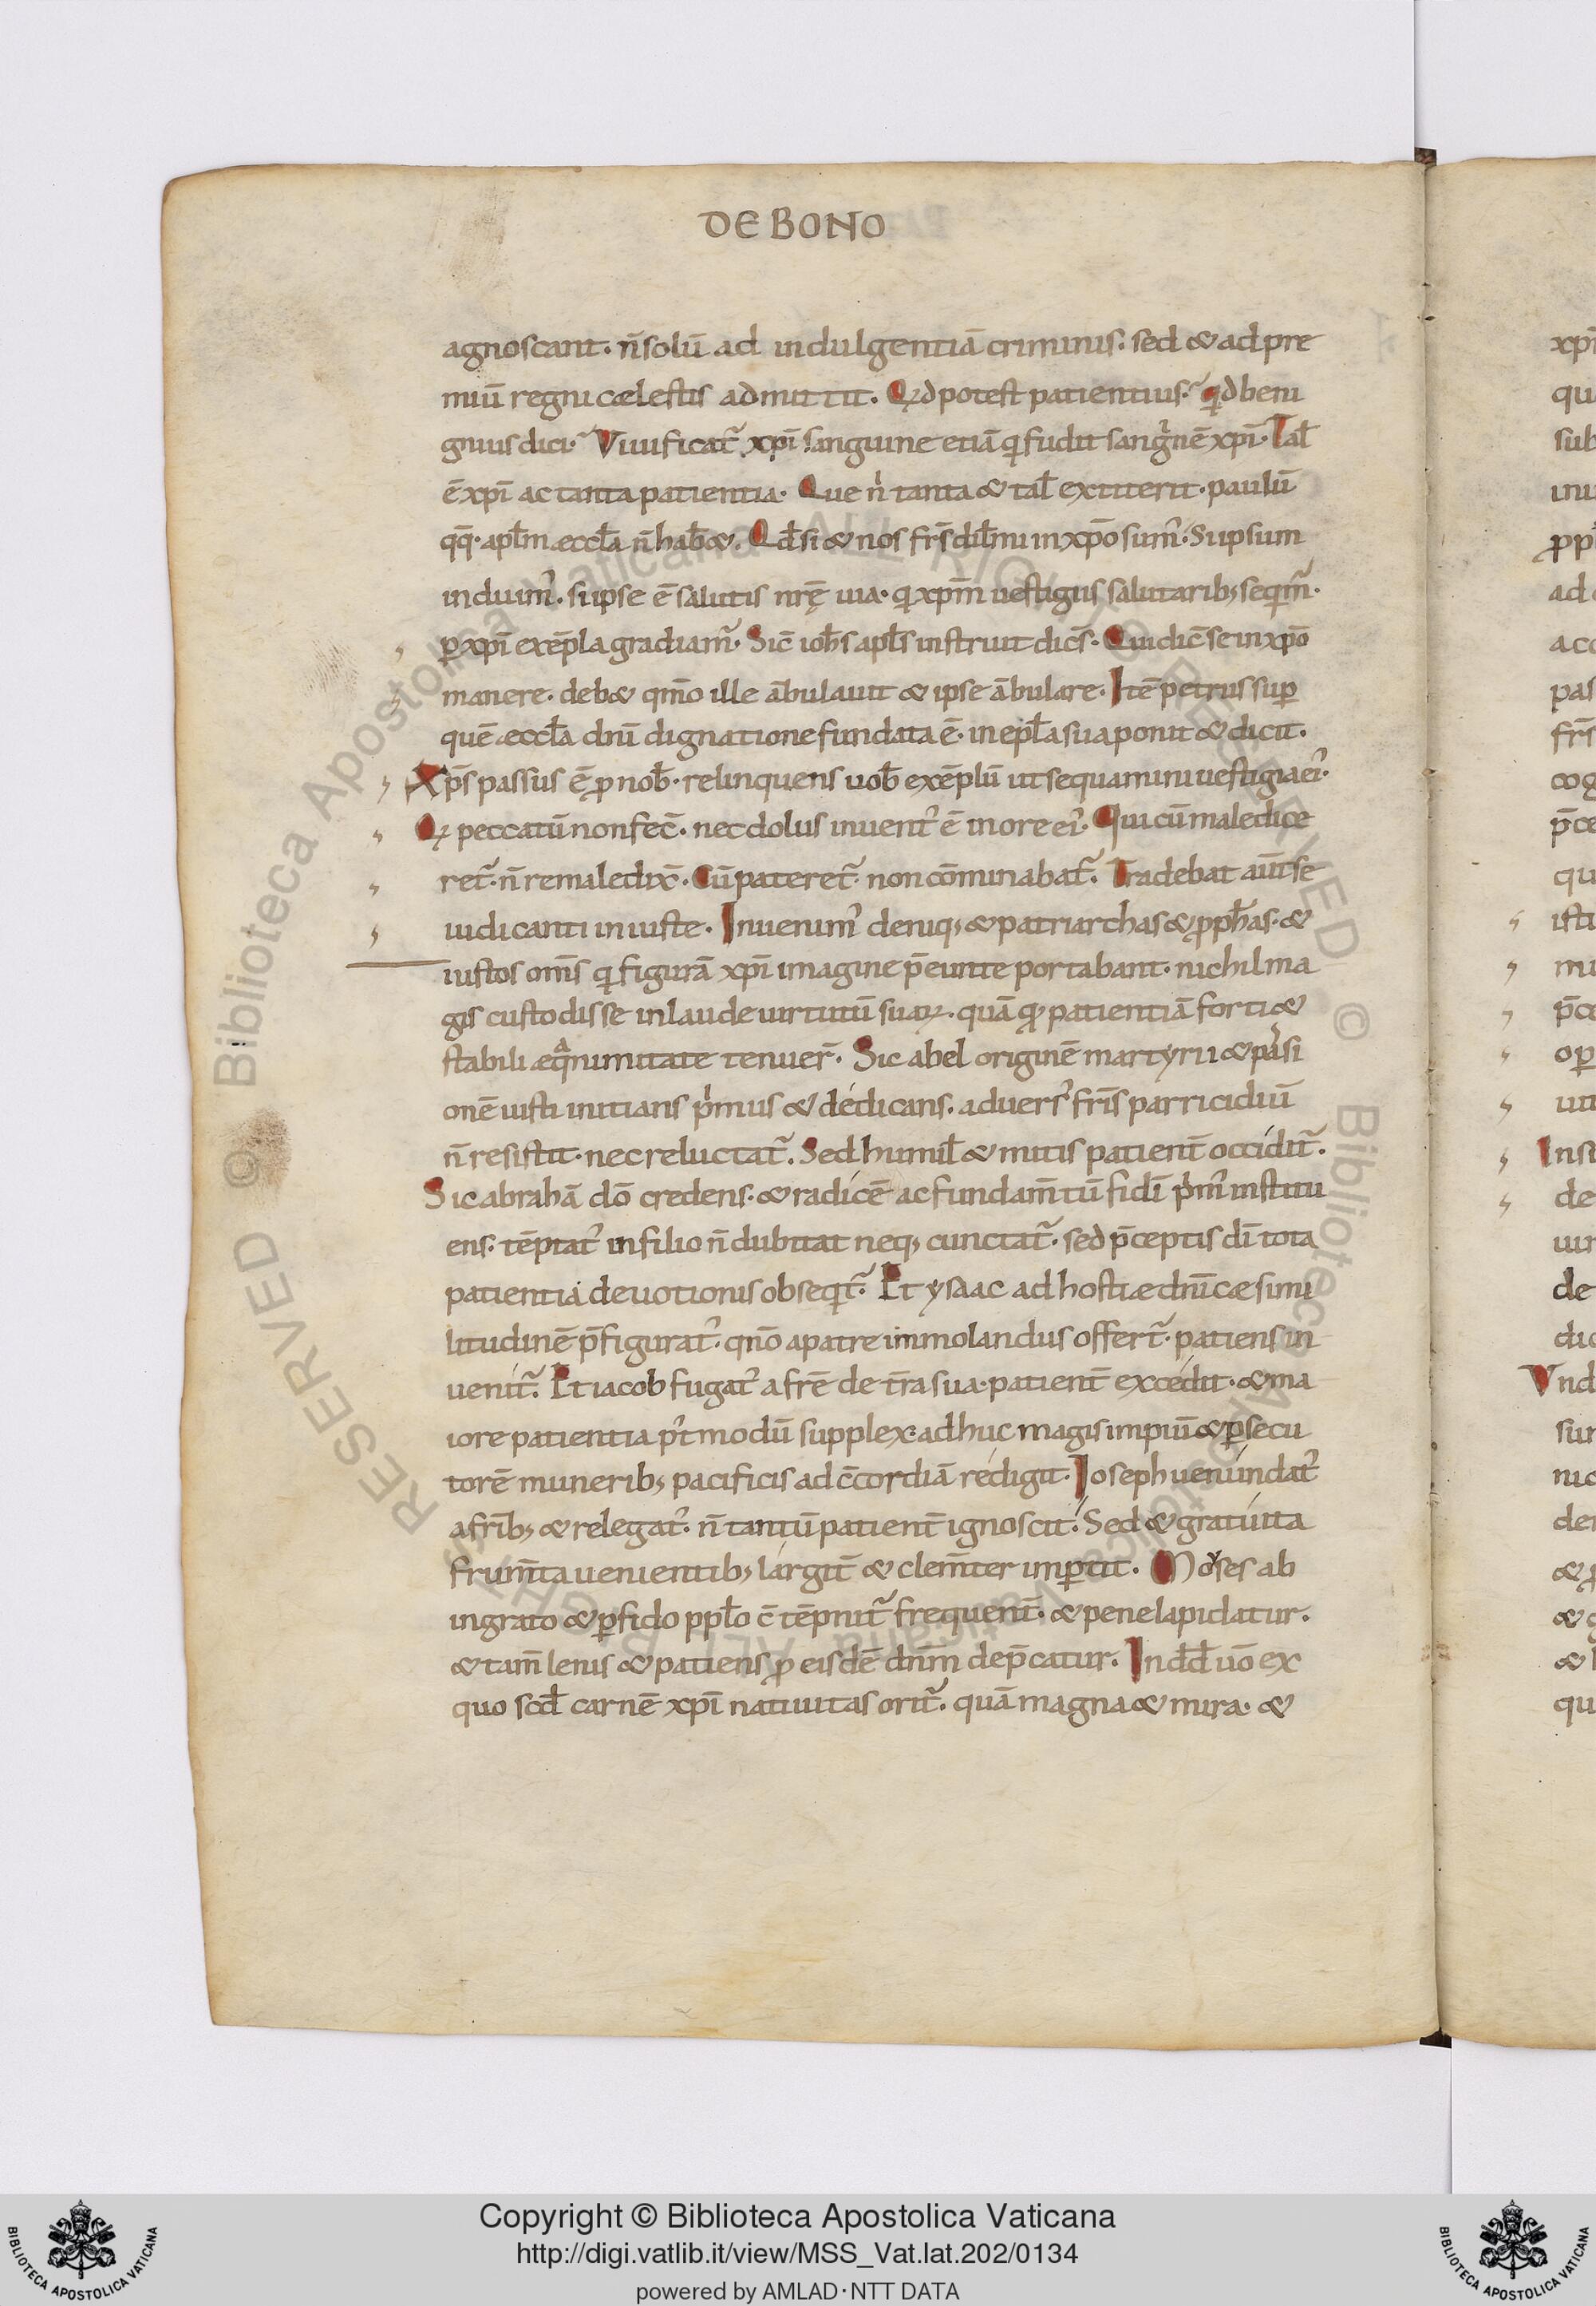 DE BONO
agnoscant. n̄ solū ad indulgentiā criminis. sed & ad pre
miū regni cælestis admittit. Qđ potest patientius. qđ beni
gnius dici. Viuificat᷑ xp̄i sanguine etiā q̣ fudit sang̍nē xp̄i. Tal̄
ē xp̄i ac tanta patientia. Que n̍ tanta & tal̄ extiterit. paulū
qq̄. apl̄m æccl̄a n̄ hab̄&. Qđ si & nos fr̄s dil̄mi in xp̄o sum᷒. Si ipsum
induim᷒. si ipse ē salutis nr̄ę uia. q̣ xp̄m uestigiis salutarib; seq̣m᷑.
ꝑ xp̄i exēpla gradiam᷑. Sic̄ ioh̄s apl̄s instruit dic̄s. Qui dic̄ se in xp̄o
manere. deb& qm̄o ille ābulauit & ipse ābulare. Itē petrus suꝑ
quē æccl̄a dn̄ū dignatione fundata ē. in epl̄a sua ponit & dicit.
Xp̄s passus ē ꝓ nob̄. relinquens uob̄ exēplū ut sequamini uestigia ei᷒.
Qꝝ peccatū non fec̄. nec dolus inuent᷒ ē in ore ei᷒. Qui cū maledice
ret᷑. n̄ remaledix̄. Cū pateret᷑ non cōminabat᷑. Tradebat aut̄ se
iudicanti iniuste. Inuenim᷒ deniq; & patriarchas & ꝓph̄as. &
iustos om̄s q̣ figurā xp̄i imagine p̄eunte portabant. nichil ma
gis custodisse in laude uirtutū suaꝝ. quā qđ patientiā forti &
stabili æq̄nimitate tenuer̄. Sic abel originē martyrii & pa̍si
onē iusti initians p̍mus & dédicans. aduers᷒ fr̄is parricidiū
n̄ resistit. nec reluctat᷑. Sed humil̄ & mitis patient̄ occídit᷑.
Sic abrahā dō credens. & radícē ac fundam̄tū fidī p̍m᷒ institu
ens. tēptat᷒ in filio n̄ dubitat neq; cunctat᷑. sed p̄ceptis dī tota
patientia deuotionis obseq̣t᷑. Et ysaac ad hostiæ dn̄icæ simi
litudinē p̄figurat᷒. qn̄o a patre immolandus offert᷑. patiens in
uenit᷑. Et iacob fugat᷒ a fr̄e de t̄ra sua. patient̄ excédit. & ma
iore patientia p᷒t modū supplex. adhuc magis impiū & ꝑsecu
torē munerib; pacificis ad c̄cordiā rédigit. Ioseph uenúndat᷒
a fr̄ib; & relegat᷒. n̄ tantū patient̄ ignoscit. Sed & gratúita
frum̄ta uenientib; lárgit̄ & clem̄ter imꝑtit. Moyses ab
ingrato & ꝑfido ppl̄o c̄tēpnit᷑ frequent̄. & pene lapidatur.
& tam̄ lenis & patiens ꝓ eisdē dn̄m dep̄catur. In dd̄ uō ex
quo scđ carnē xp̄i natiuitas orit᷑. quā magna & mira. &
Copyright © Biblioteca Apostolica Vaticana
http://digi.vatlib.it/view/MSS_Vat.lat.202/0134
powered by AMLAD·NTT DATA